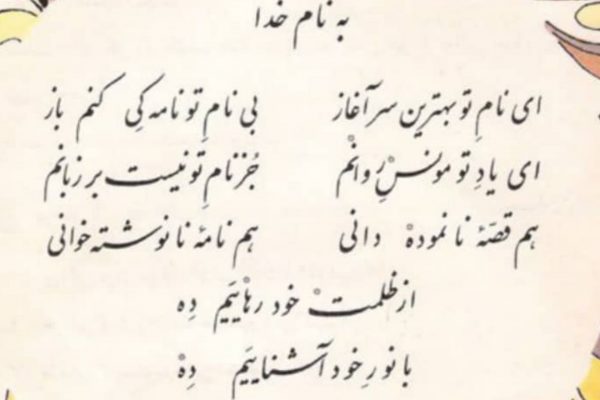 به نام خدا
ای نامِ تو بهترین سرآغاز بی نامِ تو نامه کِی کنم باز
ای یادِ تو مونسِ رْوانْم جُز نامِ تو نیست بر زبانْم
هم قصّهٔ نانمودهْ دانی هم نامهٔ نانوشته خوانی
از ظلمتْ خود رهاْییَم دِه
با نورِ خود آشناییَم دِهْ